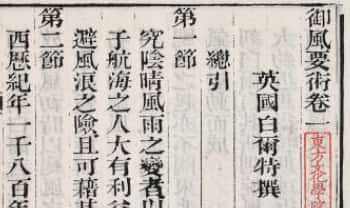 御風要術卷一
英國白爾特撰
總引
第一節
究陰晴風雨之變者以
于航海之人大有利益
避風浪之險且可藉其
第二節
西歷紀年一千八百年
東方文化學